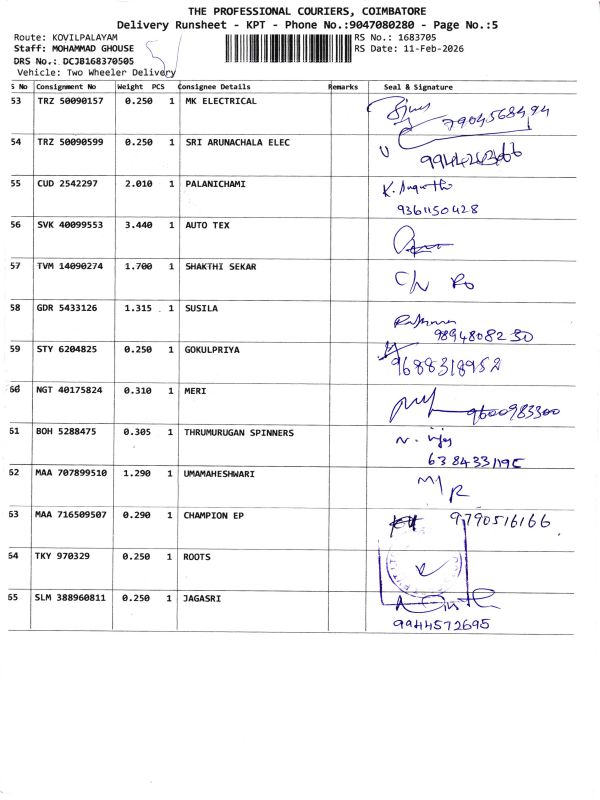 THE PROFESSIONAL COURIERS, COIMBATORE
Delivery Runsheet - KPT - Phone No.:9047080280 - Page No.:5
Route: KOVILPALAYAM RS No.: 1683705
Staff: MOHAMMAD GHOUSE RS Date: 11-Feb-2026
DRS No.: DCJB168370505
Vehicle: Two Wheeler Delivery
S No Consignment No Weight PCS Consignee Details Remarks Seal & Signature
53 TRZ 50090157 0.250 1 MK ELECTRICAL 7904568494
54 TRZ 50090599 0.250 1 SRI ARUNACHALA ELEC
55 CUD 2542297 2.010 1 PALANICHAMI
9361150428
56 SVK 40099553 3.440 1 AUTO TEX
57 TVM 14090274 1.700 1 SHAKTHI SEKAR
58 GDR 5433126 1.315 1 SUSILA
9894808230
59 STY 6204825 0.250 1 GOKULPRIYA
9688318952
60 NGT 40175824 0.310 1 MERI 9600983300
61 BOH 5288475 0.305 1 THRUMURUGAN SPINNERS
62 MAA 707899510 1.290 1 UMAMAHESHWARI
63 MAA 716509507 0.290 1 CHAMPION EP 9790516166
64 TKY 970329 0.250 1 ROOTS
65 SLM 388960811 0.250 1 JAGASRI
9944572695